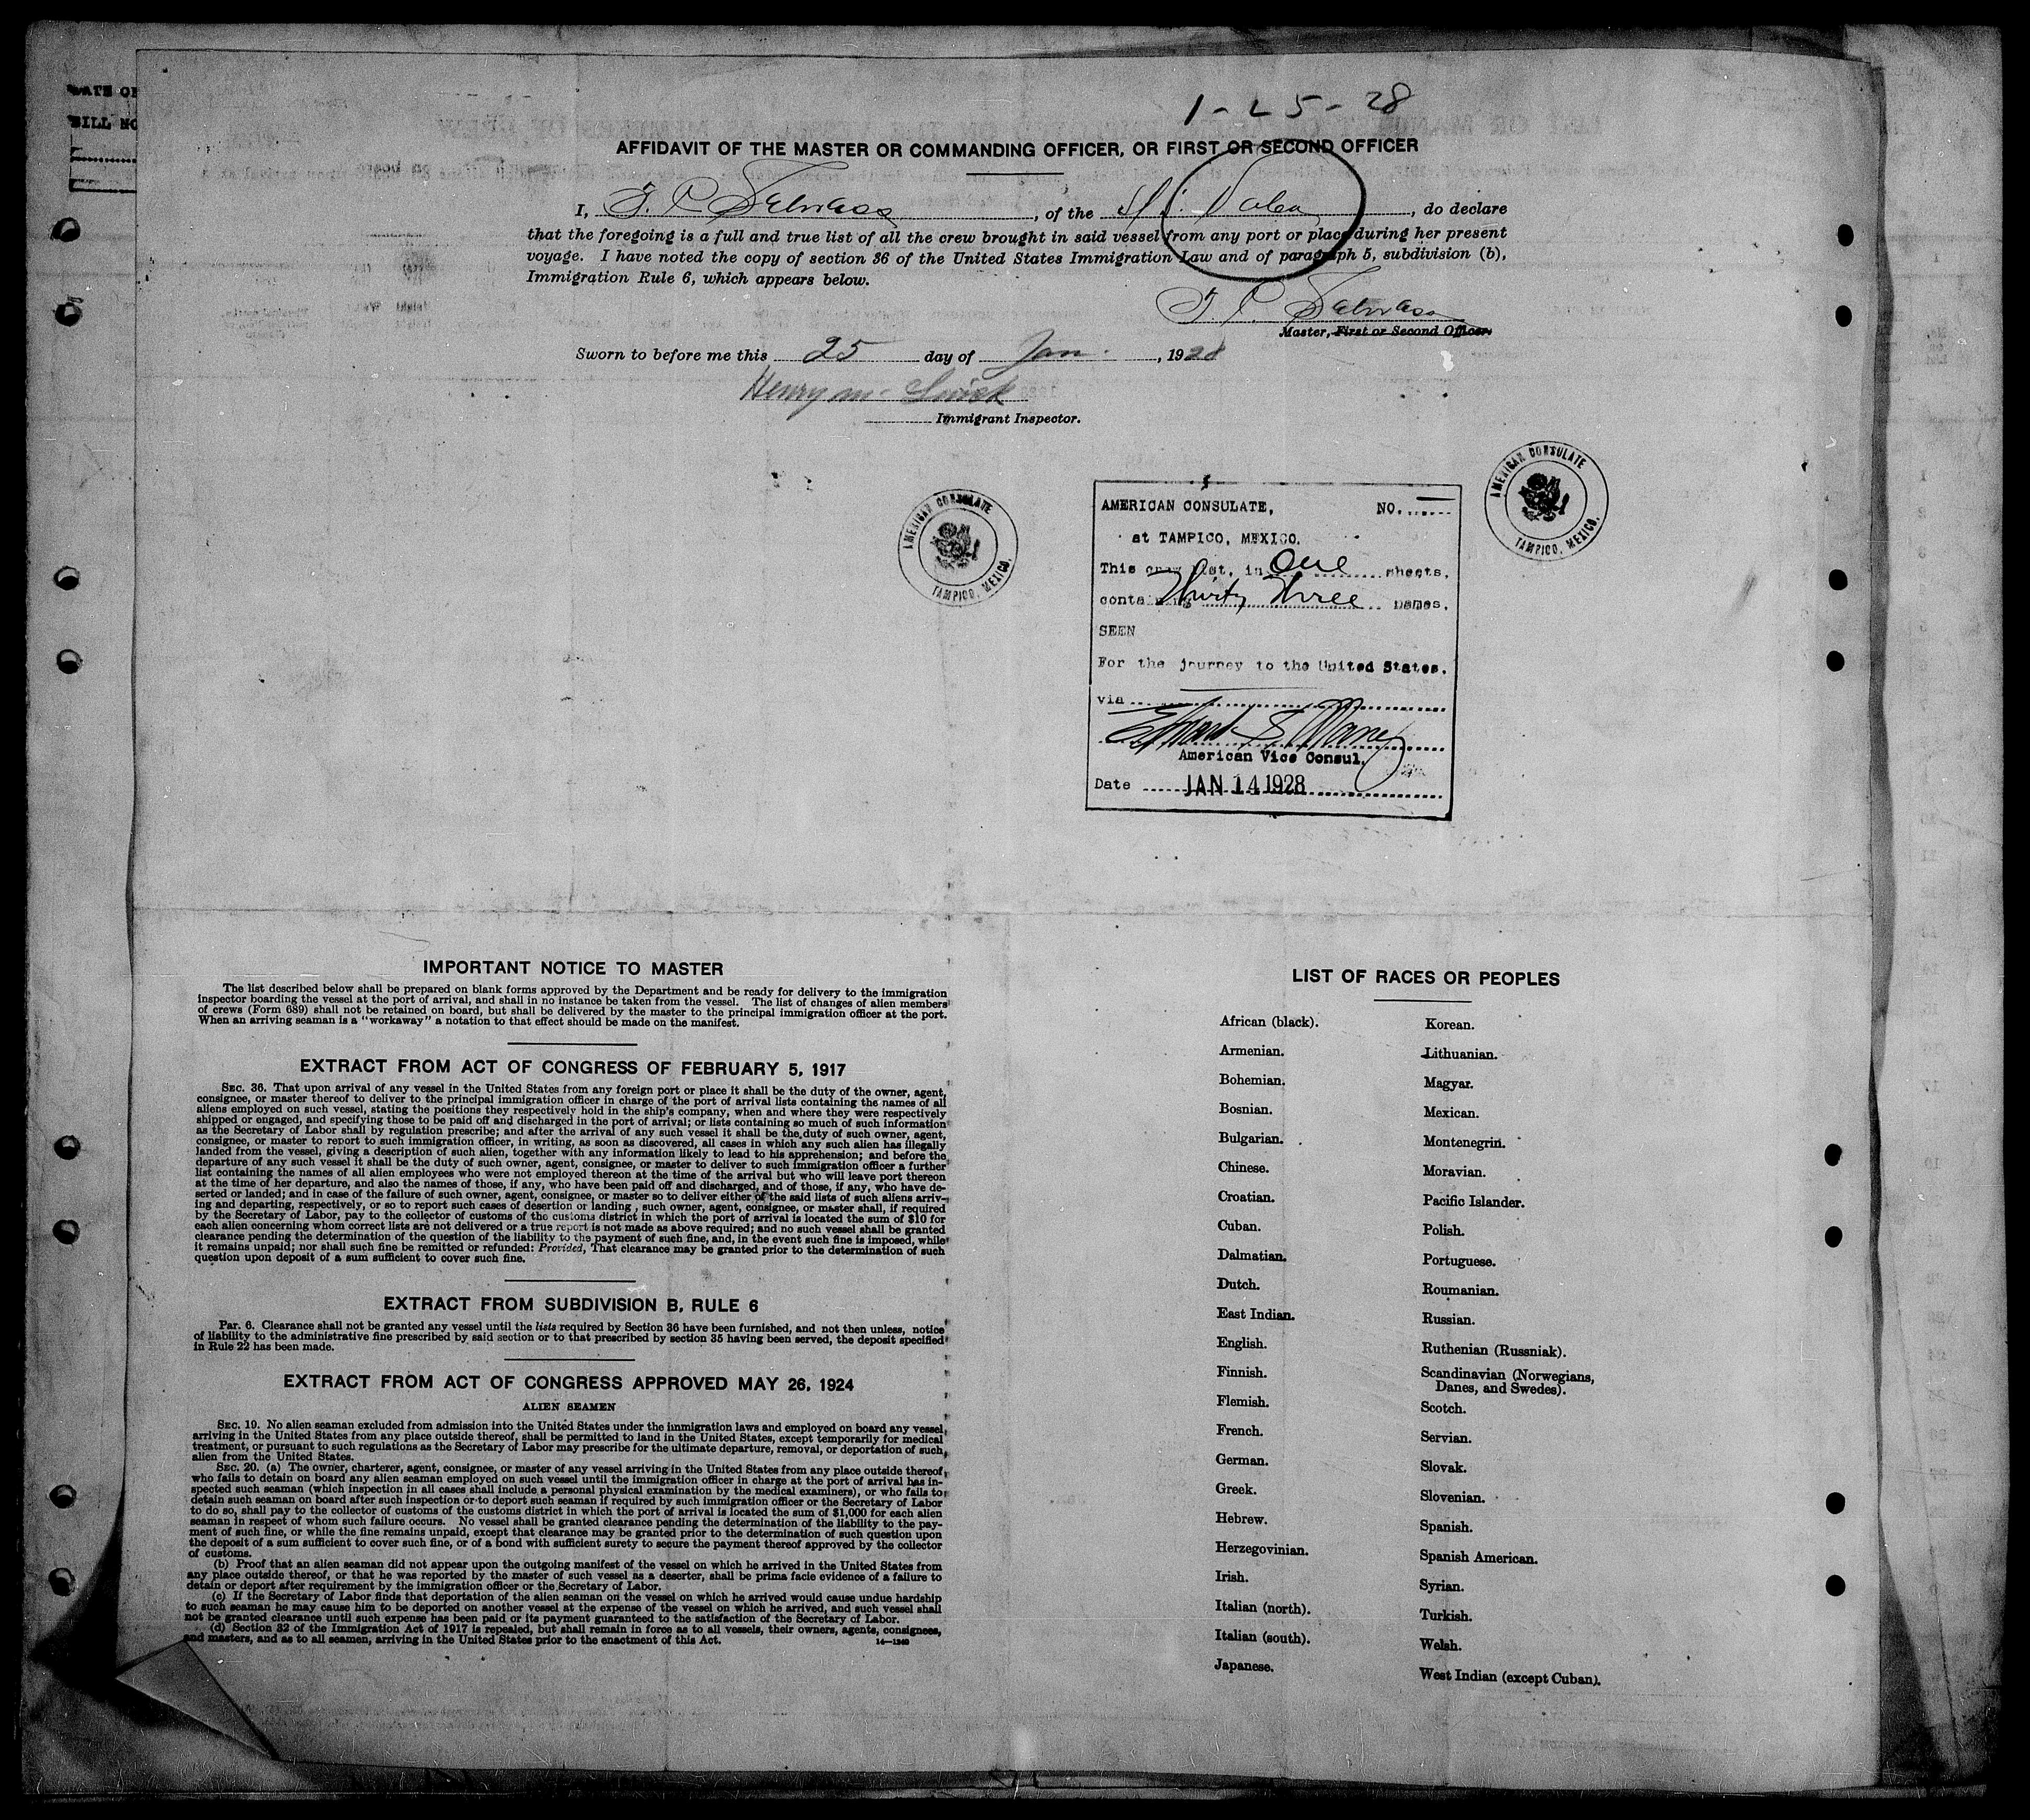 DATE OF
BILL NO
1-25-28
AFFIDAVIT OF THE MASTER OR COMMANDING OFFICER, OR FIRST OR SECOND OFFICER
I, , of the , do declare
that the foregoing is a full and true list of all the crew brought in said vessel from any port or place during her present
voyage. I have noted the copy of section 36 of the United States Immigration Law and of paragraph 5, subdivision (b),
Immigration Rule 6, which appears below.
Master, First or Second Officer.
Sworn to before me this 25 day of Jan. , 1928
Henry
Immigrant Inspector.
AMERICAN CONSULATE
TAMPICO, MEXICO.
AMERICAN CONSULATE, NO.
at TAMPICO, MEXICO.
This crew list, in One sheets,
containing Thirty Three names.
SEEN
For the journey to the United States.
via
American Vice Consul.
Date JAN 14 1928
AMERICAN CONSULATE
TAMPICO, MEXICO.
IMPORTANT NOTICE TO MASTER
The list described below shall be prepared on blank forms approved by the Department and be ready for delivery to the immigration
inspector boarding the vessel at the port of arrival, and shall in no instance be taken from the vessel. The list of changes of alien members
of crews (Form 689) shall not be retained on board, but shall be delivered by the master to the principal immigration officer at the port.
When an arriving seaman is a "workaway" a notation to that effect should be made on the manifest.
EXTRACT FROM ACT OF CONGRESS OF FEBRUARY 5, 1917
SEC. 36. That upon arrival of any vessel in the United States from any foreign port or place it shall be the duty of the owner, agent,
consignee, or master thereof to deliver to the principal immigration officer in charge of the port of arrival lists containing the names of all
aliens employed on such vessel, stating the positions they respectively hold in the ship's company, when and where they were respectively
shipped or engaged, and specifying those to be paid off and discharged in the port of arrival; or lists containing so much of such information
as the Secretary of Labor shall by regulation prescribe; and after the arrival of any such vessel it shall be the duty of such owner, agent,
consignee, or master to report to such immigration officer, in writing, as soon as discovered, all cases in which any such alien has illegally
landed from the vessel, giving a description of such alien, together with any information likely to lead to his apprehension; and before the
departure of any such vessel it shall be the duty of such owner, agent, consignee, or master to deliver to such immigration officer a further
list containing the names of all alien employees who were not employed thereon at the time of the arrival but who will leave port thereon
at the time of her departure, and also the names of those, if any, who have been paid off and discharged, and of those, if any, who have de-
serted or landed; and in case of the failure of such owner, agent, consignee, or master so to deliver either of the said lists of such aliens arriv-
ing and departing, respectively, or so to report such cases of desertion or landing, such owner, agent, consignee, or master shall, if required
by the Secretary of Labor, pay to the collector of customs of the customs district in which the port of arrival is located the sum of $10 for
each alien concerning whom correct lists are not delivered or a true report is not made as above required; and no such vessel shall be granted
clearance pending the determination of the question of the liability to the payment of such fine, and, in the event such fine is imposed, while
it remains unpaid; nor shall such fine be remitted or refunded: Provided, That clearance may be granted prior to the determination of such
question upon deposit of a sum sufficient to cover such fine.
EXTRACT FROM SUBDIVISION B, RULE 6
Par. 6. Clearance shall not be granted any vessel until the lists required by Section 36 have been furnished, and not then unless, notice
of liability to the administrative fine prescribed by said section or to that prescribed by section 35 having been served, the deposit specified
in Rule 22 has been made.
EXTRACT FROM ACT OF CONGRESS APPROVED MAY 26, 1924
ALIEN SEAMEN
SEC. 19. No alien seaman excluded from admission into the United States under the immigration laws and employed on board any vessel
arriving in the United States from any place outside thereof, shall be permitted to land in the United States, except temporarily for medical
treatment, or pursuant to such regulations as the Secretary of Labor may prescribe for the ultimate departure, removal, or deportation of such
alien from the United States.
SEC. 20. (a) The owner, charterer, agent, consignee, or master of any vessel arriving in the United States from any place outside thereof,
who fails to detain on board any alien seaman employed on such vessel until the immigration officer in charge at the port of arrival has in-
spected such seaman (which inspection in all cases shall include a personal physical examination by the medical examiners), or who fails to
detain such seaman on board after such inspection or to deport such seaman if required by such immigration officer or the Secretary of Labor
to do so, shall pay to the collector of customs of the customs district in which the port of arrival is located the sum of $1,000 for each alien
seaman in respect of whom such failure occurs. No vessel shall be granted clearance pending the determination of the liability to the pay-
ment of such fine, or while the fine remains unpaid, except that clearance may be granted prior to the determination of such question upon
the deposit of a sum sufficient to cover such fine, or of a bond with sufficient surety to secure the payment thereof approved by the collector
of customs.
(b) Proof that an alien seaman did not appear upon the outgoing manifest of the vessel on which he arrived in the United States from
any place outside thereof, or that he was reported by the master of such vessel as a deserter, shall be prima facie evidence of a failure to
detain or deport after requirement by the immigration officer or the Secretary of Labor.
(c) If the Secretary of Labor finds that deportation of the alien seaman on the vessel on which he arrived would cause undue hardship
to such seaman he may cause him to be deported on another vessel at the expense of the vessel on which he arrived, and such vessel shall
not be granted clearance until such expense has been paid or its payment guaranteed to the satisfaction of the Secretary of Labor.
(d) Section 32 of the Immigration Act of 1917 is repealed, but shall remain in force as to all vessels, their owners, agents, consignees,
and masters, and as to all seamen, arriving in the United States prior to the enactment of this Act.
14—1240
LIST OF RACES OR PEOPLES
African (black).
Armenian.
Bohemian.
Bosnian.
Bulgarian.
Chinese.
Croatian.
Cuban.
Dalmatian.
Dutch.
East Indian.
English.
Finnish.
Flemish.
French.
German.
Greek.
Hebrew.
Herzegovinian.
Irish.
Italian (north).
Italian (south).
Japanese.
Korean.
Lithuanian.
Magyar.
Mexican.
Montenegrin.
Moravian.
Pacific Islander.
Polish.
Portuguese.
Roumanian.
Russian.
Ruthenian (Russniak).
Scandinavian (Norwegians,
Danes, and Swedes).
Scotch.
Servian.
Slovak.
Slovenian.
Spanish.
Spanish American.
Syrian.
Turkish.
Welsh.
West Indian (except Cuban).